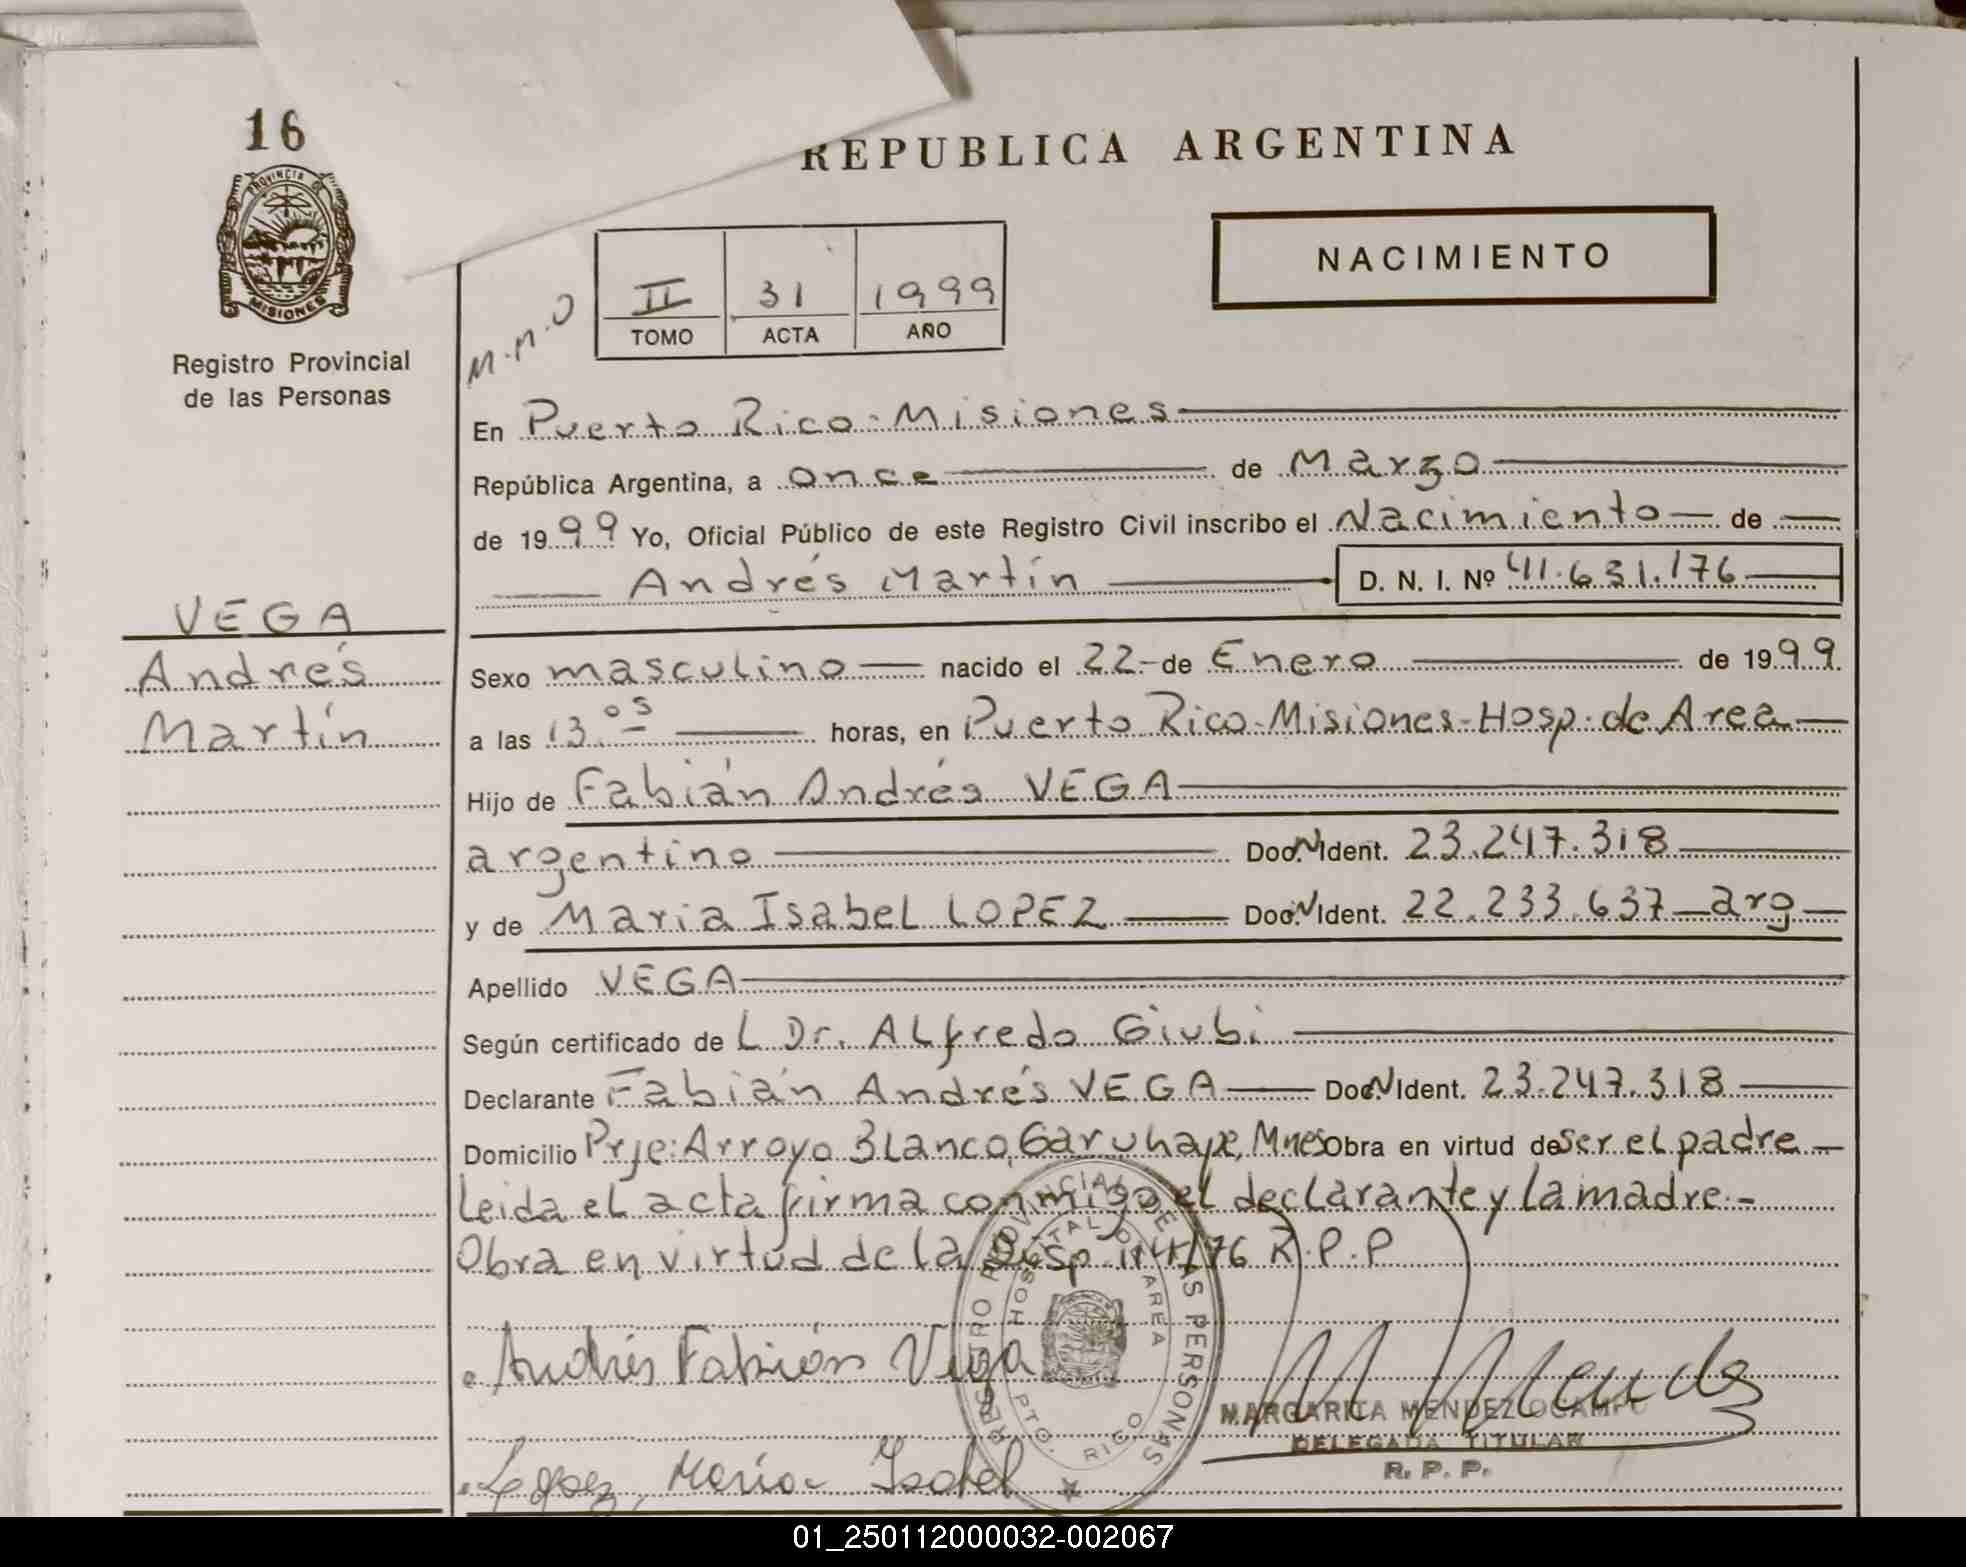 16
REPUBLICA ARGENTINA
PROVINCIA DE
MISIONES
Registro Provincial
de las Personas
NACIMIENTO
M.M.O
II 31 1999
TOMO ACTA AÑO
En Puerto Rico - Misiones
República Argentina, a once de Marzo
de 1999 Yo, Oficial Público de este Registro Civil inscribo el Nacimiento de
Andrés Martín D. N. I. Nº 41.631.176
VEGA
Andrés
Martín
Sexo masculino nacido el 22 - de Enero de 1999
a las 13.05 horas, en Puerto Rico - Misiones - Hosp. de Area
Hijo de Fabián Andrés VEGA
argentino Doc. N Ident. 23.247.318
y de Maria Isabel LOPEZ Doc. N Ident. 22.233.637 arg
Apellido VEGA
Según certificado de L Dr. Alfredo Giubi
Declarante Fabián Andrés VEGA Doc. N Ident. 23.247.318
Domicilio Prje: Arroyo Blanco, Garuhape, Mnes Obra en virtud de ser el padre
Leida el acta firma conmigo el declarante y la madre.-
Obra en virtud de la Disp. 114/76 R.P.P
REGISTRO PROVINCIAL DE LAS PERSONAS
HOSPITAL DE AREA
PTO. RICO
Andrés Fabián Vega
M Mendez
MARGARITA MENDEZ OCAMPO
DELEGADA TITULAR
R. P. P.
López, María Isabel
01_250112000032-002067